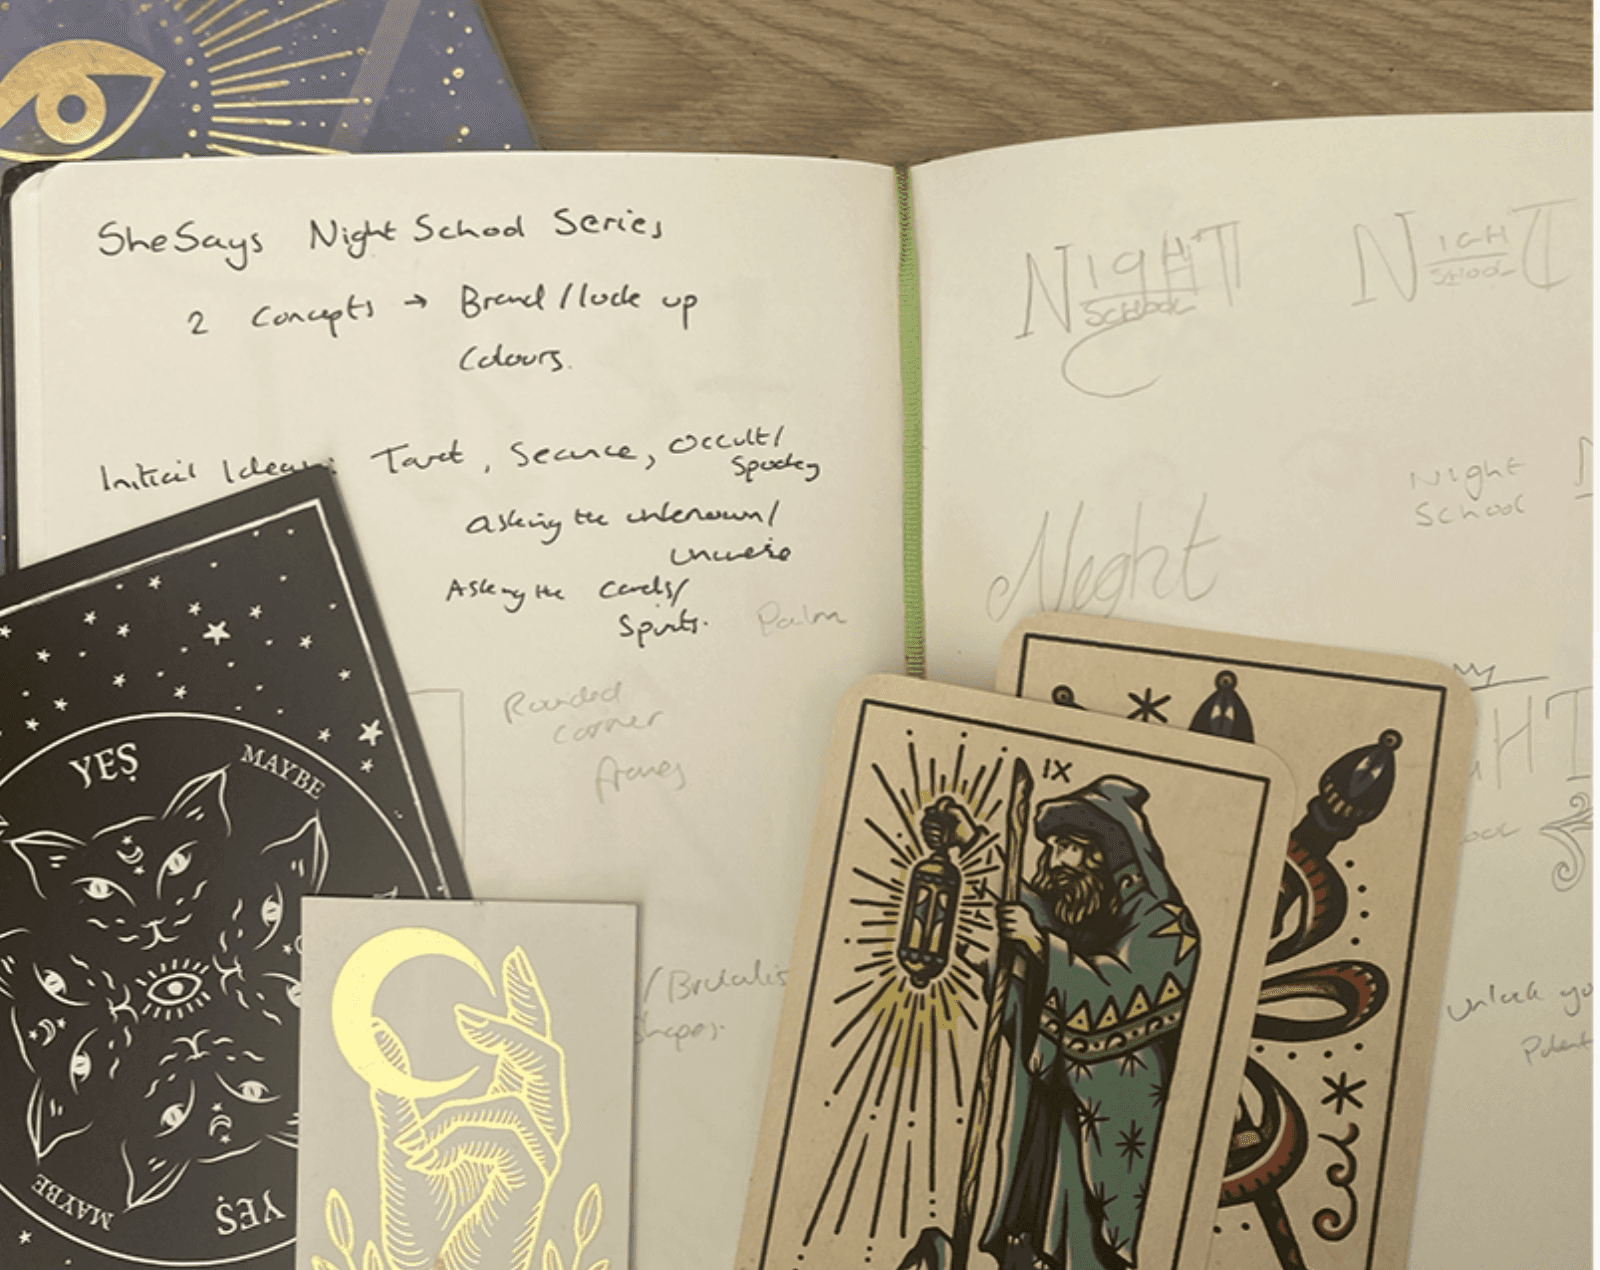 SheSays Night School Series
2 Concepts → Brand/lock up
Colours.
Initial Ideas: Tarot, Seance, Occult/
Spooky
Asking the unknown/
universe
Asking the Cards/
Spirits. Palm
Rounded
corner
frames
/Brutalis
Shapes.
NIgHT
SCHOOL
NIGHT
SCHOOL
Night
School
Night
HT
Unlock yo
Potent
YES
MAYBE
MAYBE
YES
IX